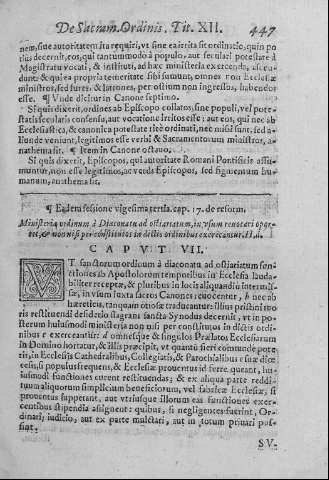 De Sacram. Ordinis. Tit. XII. 447
nem, siue autoritatem ita requiri, vt sine ea irrita sit ordinatio, quin po
tius decernit, eos, qui tantummodo à populo, aut seculari potestate à
Magistratu vocati, & instituti, ad hæc ministeria exercenda, ascen
dunt: & qui ea propria temeritate sibi sumunt, omnes non Ecclesiæ
ministros, sed fures, & latrones, per ostium non ingressos, habendos
esse. ¶ Vnde dicitur in Canone septimo.
Si quis dixerit, ordines ab Episcopo collatos, sine populi, vel pote
statis secularis consensu, aut vocatione irritos esse: aut eos, qui nec ab
Ecclesiastica, & canonica potestate ritè ordinati, nec missi sunt, sed a-
liunde veniunt, legitimos esse verbi & Sacramentorum ministros, a-
nathema sit. ¶ Item in Canone octauo.
Si quis dixerit, Episcopos, qui autoritate Romani Pontificis assu
muntur, non esse legitimos, ac veros Episcopos, sed figmentum hu-
manum, anathema sit.
¶ Eadem sessione vigesima tertia. cap. 17. de reform.
Ministeria ordinum à Diaconatu ad ostiariatum, in vsum reuocari opor-
tet, & non nisi per constitutos in dictis ordinibus exerceantur.
CAPVT. VII.
VT sanctorum ordinum à diaconatu ad ostiariatum fun-
ctiones ab Apostolorum temporibus in Ecclesia lauda-
biliter receptæ, & pluribus in locis aliquandiu intermis-
sæ, in vsum iuxta sacros Canones reuocentur, nec ab
hæreticis, tanquam otiosæ traducantur: illius pristini mo
ris restituendi desiderio flagrans sancta Synodus decernit, vt in po-
sterum huiusmodi ministeria non nisi per constitutos in dictis ordi-
nibus exerceantur: omnesque & singulos Prælatos Ecclesiarum
in Domino hortatur, & illis præcipit, vt quantum fieri commodè pote
rit, in Ecclesijs Cathedralibus, Collegiatis, & Parochialibus suæ diœ
cesis, si populus frequens, & Ecclesiæ prouentus id ferre queant, hu-
iusmodi functiones curent restituendas; & ex aliqua parte reddi-
tuum aliquorum simplicium beneficiorum, vel fabricæ Ecclesiæ, si
prouentus suppetant, aut vtriusque illorum eas functiones exer-
centibus stipendia assignent: quibus, si negligentes fuerint, Or-
dinarij iudicio, aut ex parte mulctari, aut in totum priuari pos-
sint.
SV-